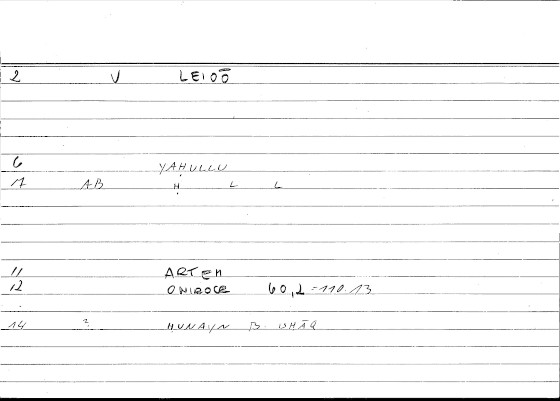 2 V LEIOŌ
6 YAHULLU
17 AB Ḥ L L
11 ARTEM
12 ONIROCR 60,2 = 110.13
14 ? ḤUNAYN B.